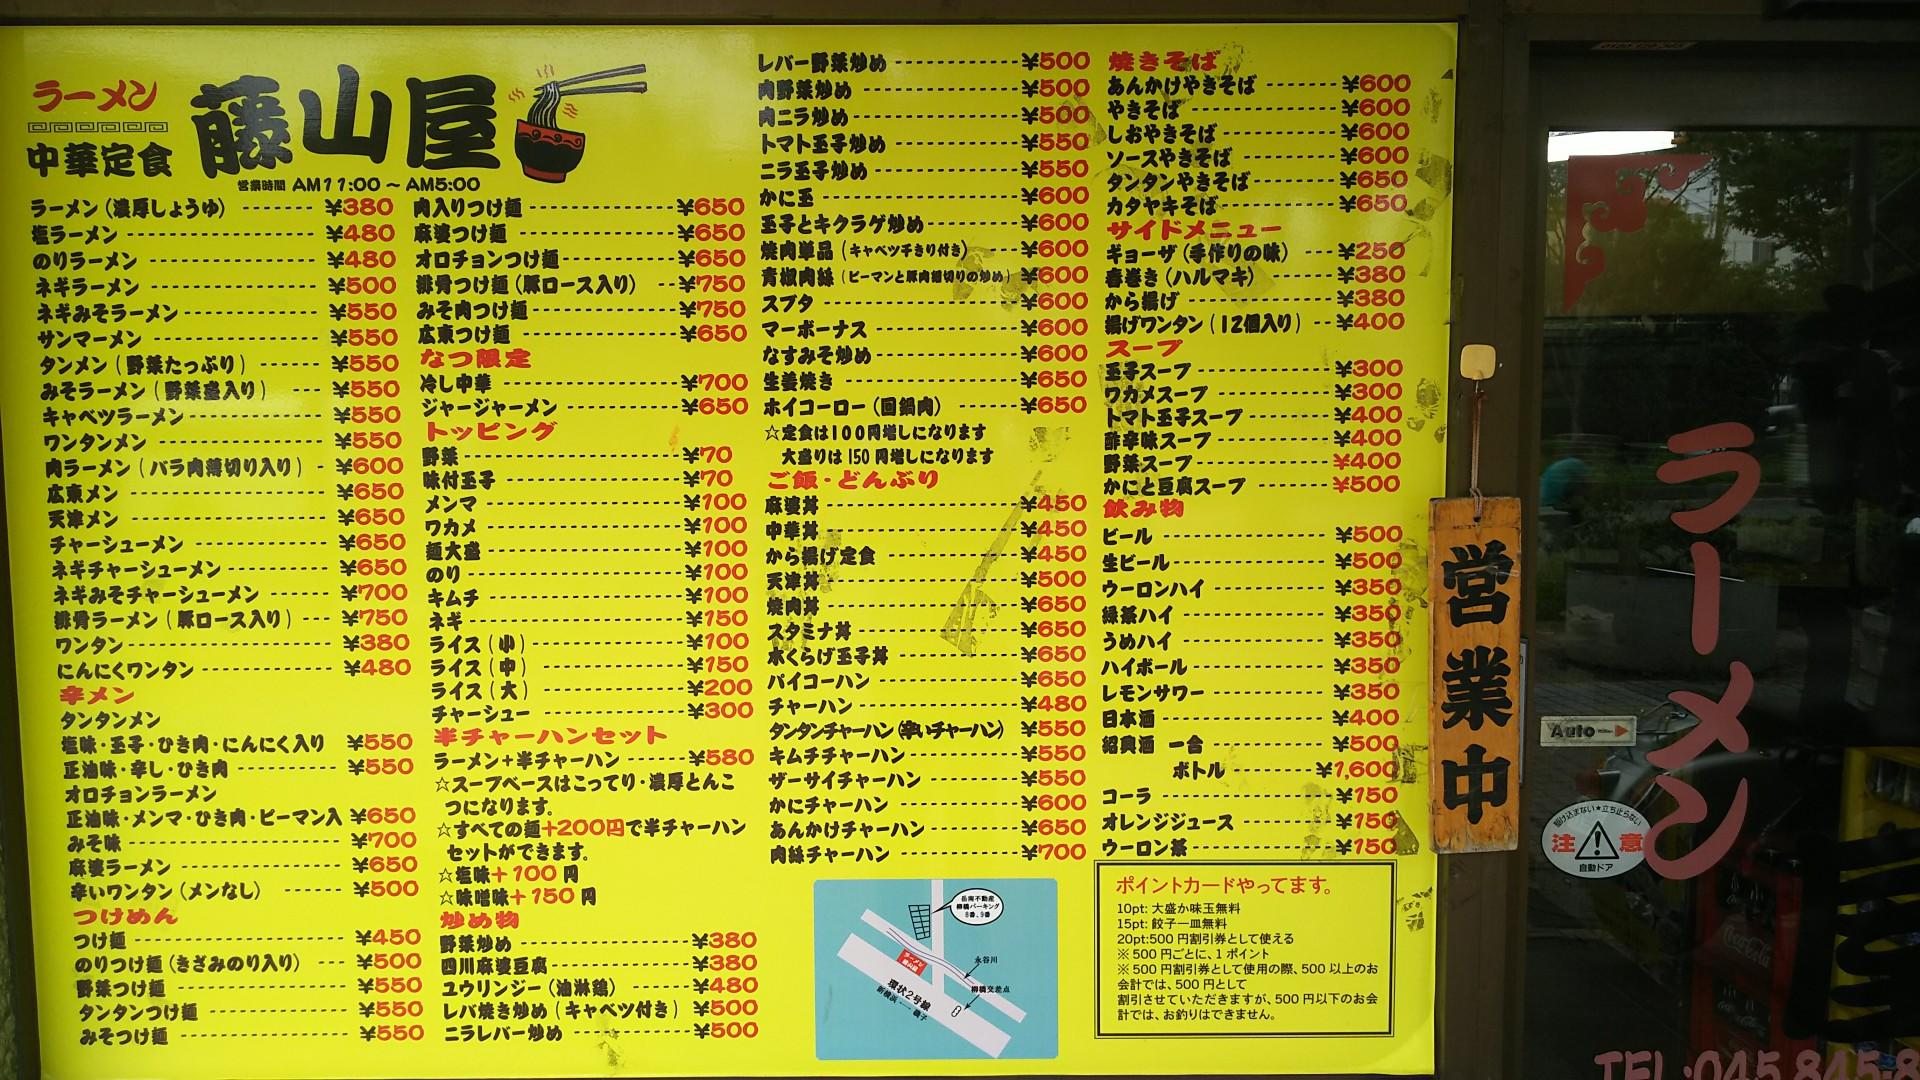 ラーメン
中華定食
藤山屋
営業時間 AM11:00 ~ AM5:00
ラーメン(濃厚しょうゆ) ¥380
塩ラーメン ¥480
のりラーメン ¥480
ネギラーメン ¥500
ネギみそラーメン ¥550
サンマーメン ¥550
タンメン(野菜たっぷり) ¥550
みそラーメン(野菜盛入り) ¥550
キャベツラーメン ¥550
ワンタンメン ¥550
肉ラーメン(バラ肉薄切り入り) ¥600
広東メン ¥650
天津メン ¥650
チャーシューメン ¥650
ネギチャーシューメン ¥650
ネギみそチャーシューメン ¥700
排骨ラーメン(豚ロース入り) ¥750
ワンタン ¥380
にんにくワンタン ¥480
辛メン
タンタンメン
塩味・玉子・ひき肉・にんにく入り ¥550
正油味・辛し・ひき肉 ¥550
オロチョンラーメン
正油味・メンマ・ひき肉・ピーマン入 ¥650
みそ味 ¥700
麻婆ラーメン ¥650
辛いワンタン(メンなし) ¥500
つけめん
つけ麺 ¥450
のりつけ麺(きざみのり入り) ¥500
野菜つけ麺 ¥550
タンタンつけ麺 ¥550
みそつけ麺 ¥550
肉入りつけ麺 ¥650
麻婆つけ麺 ¥650
オロチョンつけ麺 ¥650
排骨つけ麺(豚ロース入り) ¥750
みそ肉つけ麺 ¥750
広東つけ麺 ¥650
なつ限定
冷し中華 ¥700
ジャージャーメン ¥650
トッピング
野菜 ¥70
味付玉子 ¥70
メンマ ¥100
ワカメ ¥100
麺大盛 ¥100
のり ¥100
キムチ ¥100
ネギ ¥150
ライス(小) ¥100
ライス(中) ¥150
ライス(大) ¥200
チャーシュー ¥300
半チャーハンセット
ラーメン+半チャーハン ¥580
☆スープベースはこってり・濃厚とんこ
つになります。
☆すべての麺+200円で半チャーハン
セットができます。
☆塩味+100円
☆味噌味+150円
炒め物
野菜炒め ¥380
四川麻婆豆腐 ¥380
ユウリンジー(油淋鶏) ¥480
レバ焼き炒め(キャベツ付き) ¥500
ニラレバー炒め ¥500
レバー野菜炒め ¥500
肉野菜炒め ¥500
肉ニラ炒め ¥500
トマト玉子炒め ¥550
ニラ玉子炒め ¥550
かに玉 ¥600
玉子とキクラゲ炒め ¥600
焼肉単品(キャベツ千きり付き) ¥600
青椒肉絲(ピーマンと豚肉細切りの炒め) ¥600
スブタ ¥600
マーボーナス ¥600
なすみそ炒め ¥600
生姜焼き ¥650
ホイコーロー(回鍋肉) ¥650
☆定食は100円増しになります
大盛りは150円増しになります
ご飯・どんぶり
麻婆丼 ¥450
中華丼 ¥450
から揚げ定食 ¥450
天津丼 ¥500
焼肉丼 ¥650
スタミナ丼 ¥650
木くらげ玉子丼 ¥650
パイコーハン ¥650
チャーハン ¥480
タンタンチャーハン(辛いチャーハン) ¥550
キムチチャーハン ¥550
ザーサイチャーハン ¥550
かにチャーハン ¥600
あんかけチャーハン ¥650
肉絲チャーハン ¥700
岳南不動産
柳橋パーキング
8番、9番
ラーメン
藤山屋
永谷川
柳橋交差点
環状2号線
新横浜 ←→ 磯子
焼きそば
あんかけやきそば ¥600
やきそば ¥600
しおやきそば ¥600
ソースやきそば ¥600
タンタンやきそば ¥650
カタヤキそば ¥650
サイドメニュー
ギョーザ(手作りの味) ¥250
春巻き(ハルマキ) ¥380
から揚げ ¥380
揚げワンタン(12個入り) ¥400
スープ
玉子スープ ¥300
ワカメスープ ¥300
トマト玉子スープ ¥400
酢辛味スープ ¥400
野菜スープ ¥400
かにと豆腐スープ ¥500
飲み物
ビール ¥500
生ビール ¥500
ウーロンハイ ¥350
緑茶ハイ ¥350
うめハイ ¥350
ハイボール ¥350
レモンサワー ¥350
日本酒 ¥400
紹興酒 一合 ¥500
ボトル ¥1,600
コーラ ¥150
オレンジジュース ¥150
ウーロン茶 ¥150
ポイントカードやってます。
10pt: 大盛か味玉無料
15pt: 餃子一皿無料
20pt:500円割引券として使える
※500円ごとに、1ポイント
※500円割引券として使用の際、500以上のお
会計では、500円として
割引させていただきますが、500円以下のお会
計では、お釣りはできません。
営業中
ラーメン
Auto
駆け込まない★立ち止らない
注意
自動ドア
Coca-Cola
TEL:045 845-8